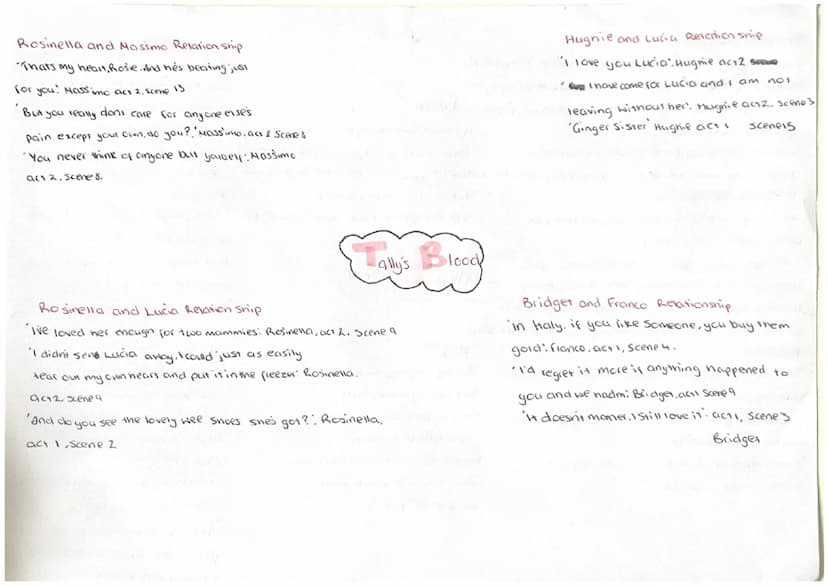 Rosinella and Massimo Relationship
'Thats my heart, Rose. And he's beating just
for you'. Massimo act 2, scene 13
'But you really dont care for anyone else's
pain except your own, do you?'. Massimo. act 2 scene 8
'You never think of anyone but yourself'. Massimo
act 2. scene 8.
Hughie and Lucia Relationship
'I love you Lucia'. Hughie act 2
'I have come for Lucia and I am not
leaving without her'. Hughie act 2. scene 3
'Ginger Sister' Hughie act 1 scene 15
Tally's Blood
Rosinella and Lucia Relationship
'I've loved her enough for two mammies'. Rosinella, act 2. scene 9
'I didn't send Lucia away. I could just as easily
tear out my own heart and put it in the freezer' Rosinella.
act 2 scene 4
'And do you see the lovely wee shoes she's got?'. Rosinella,
act 1. scene 2
Bridget and Franco Relationship
'In Italy. if you like someone, you buy them
gold'. Franco. act 1, scene 4.
'I'd regret it more if anything happened to
you and we hadn't' Bridget, act 1 scene 9
'It doesn't matter. I still love it'. act 1, scene 3
Bridget